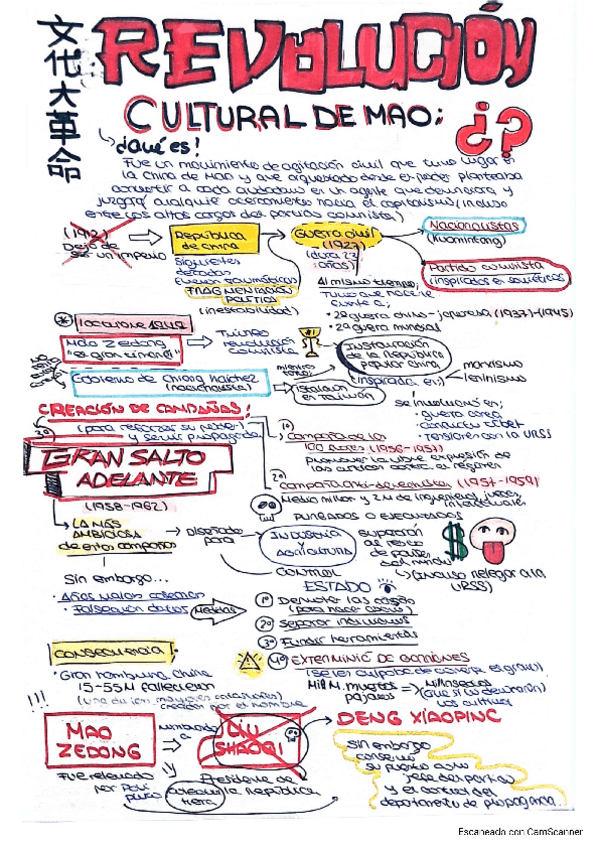 文化大革命
REVOLUCIÓN
CULTURAL DE MAO:
¿?
¿Qué es?
Fue un movimiento de agitación civil que tuvo lugar en
la China de Mao y que arquebrado desde el poder planteaba
convertir a cada ciudadano en un agente que denunciara y
juzgara cualquier acercamiento hacia el capitalismo (incluso
entre los altos cargos del partido comunista)
(1912)
Dejó de
ser un imperio
República
de China
siguientes
décadas
fueron traumáticas
FRAGMENTACIÓN
POLÍTICA
(inestabilidad)
Guerra civil
(1927)
(dura 22
años)
Nacionalistas
(Kuomintang)
Partido comunista
(inspirados en soviéticos)
Al mismo tiempo,
tuvo que hacerle
frente a:
2ª guerra chino-japonesa (1937)-(1945)
2ª guerra mundial
1 octubre 1949
Mao Zedong
"el gran timonel"
Triunfo
revolución
comunista
Instauración
de la República
popular China
(inspirada en)
marxismo
leninismo
Gobierno de Chiang Kaishek
(nacionalista)
mientras
tanto
instalación
en Taiwán
se involucró en:
guerra corea
conflicto Tíbet
tensiones con la URSS
CREACIÓN DE CAMPAÑAS:
(para reforzar su poder
y servir propaganda)
1º
Campaña de las
100 flores (1956-1957)
promover la libre expresión de
las críticas contra el régimen
2º
Campaña anti-derechistas (1957-1959)
Medio millón y 2M de ingenieros, jueces,
intelectuales
PURGADOS O EJECUTADOS
3º
GRAN SALTO
ADELANTE
(1958-1962)
LA MÁS
AMBICIOSA
de estas campañas
Diseñado
para
INDUSTRIA
Y
AGRICULTURA
CONTROL
ESTADO
superar
al resto
de países
del mundo
(incluso relegar a la
URSS)
Sin embargo...
Años malos cosechas
Falseación datos
Medidas
1º
(para hacer acero)
2º
3º Fundir herramientas
4º EXTERMINIO DE GORRIONES
Mill M. muertos
pájaros
los cultivos
CONSECUENCIA:
Gran hambruna China
15-55M fallecieron
creadas por el hombre
!!!
MAO
ZEDONG
nombrado
a
LIU
SHAOQI
DENG XIAOPING
Fue relevado
por
Presidente de
la República
Sin embargo
conservó
su puesto como
jefe del partido
y el control del
departamento de propaganda...
Escaneado con CamScanner